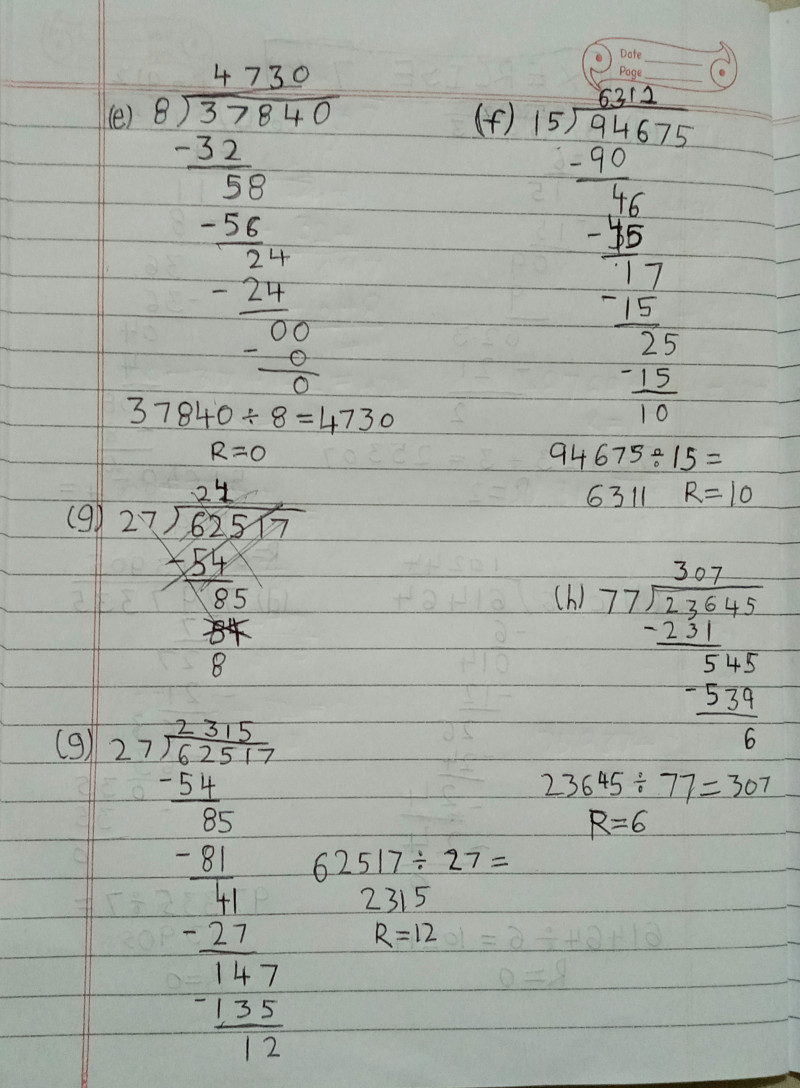 Date
Page
4730
(e) 8)37840
-32
58
-56
24
-24
00
-0
0
37840÷8=4730
R=0
6312
(f) 15)94675
-90
46
-45
17
-15
25
-15
10
94675÷15=
6311 R=10
24
(g) 27)62517
-54
85
84
8
(g) 2315
27)62517
-54
85
-81
41
-27
147
-135
12
62517÷27=
2315
R=12
307
(h) 77)23645
-231
545
-539
6
23645÷77=307
R=6